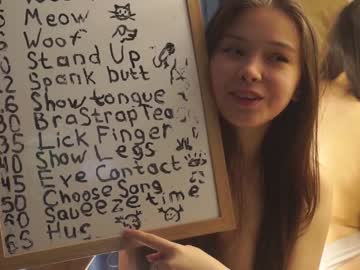 Meow
5 Woof
0 Stand Up
2 Spank butt
6 Show tongue
30 BraStrapTea
35 Lick Finger
40 Show Legs
45 Eye Contact
50 Choose Song
60 Squeeze time
65 Hug